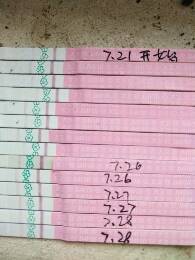 7.21 开始
7.26
7.26
7.27
7.27
7.28
7.28